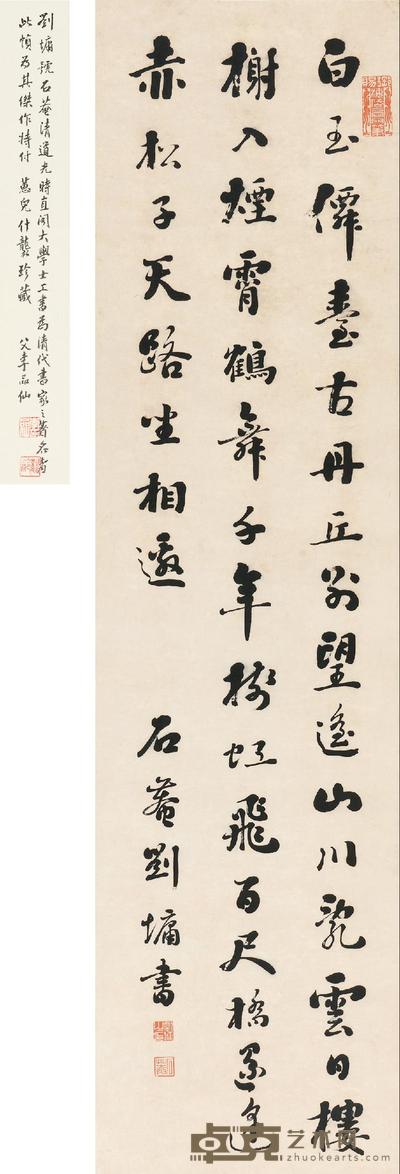 白玉僊臺古丹丘別望遙山川亂雲日樓
榭入煙霄鶴舞千年樹虹飛百尺橋還疑
赤松子天路坐相邀
石菴劉墉書
劉墉號石菴清道光時直閣大學士工書為清代書家之著名者
此幀為其傑作特付 萬兒什襲珍藏
父李品仙
卓克艺术网
www.zhuokearts.com